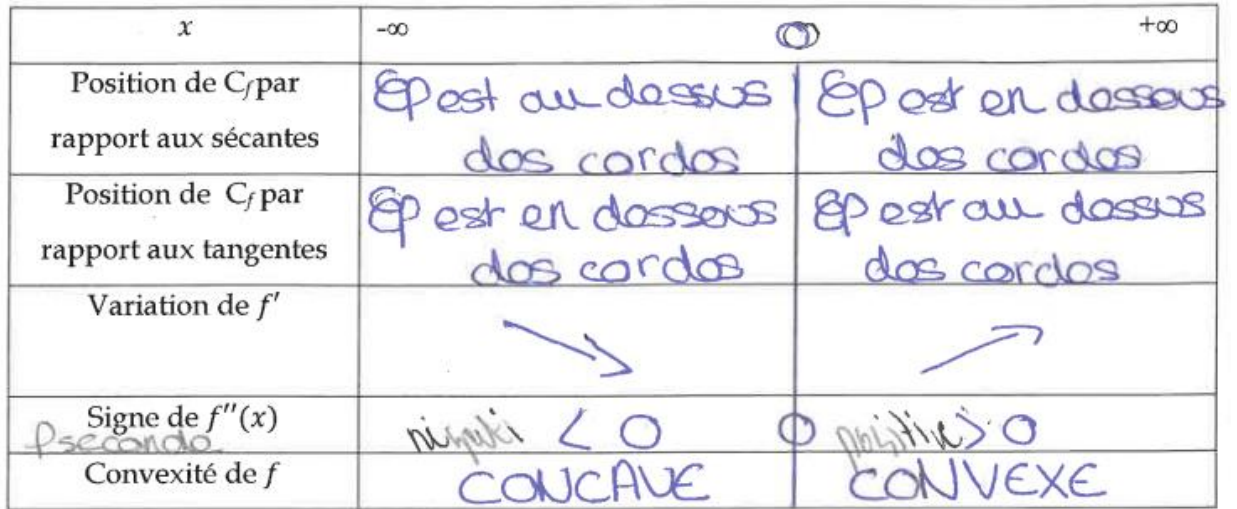 x -∞ 0 +∞
Position de Cf par
rapport aux sécantes
Cf est au dessus
des cordes
Cf est en dessous
des cordes
Position de Cf par
rapport aux tangentes
Cf est en dessous
des cordes
Cf est au dessus
des cordes
Variation de f'
Signe de f''(x) < 0 0 positive > 0
f seconde
Convexité de f CONCAVE CONVEXE